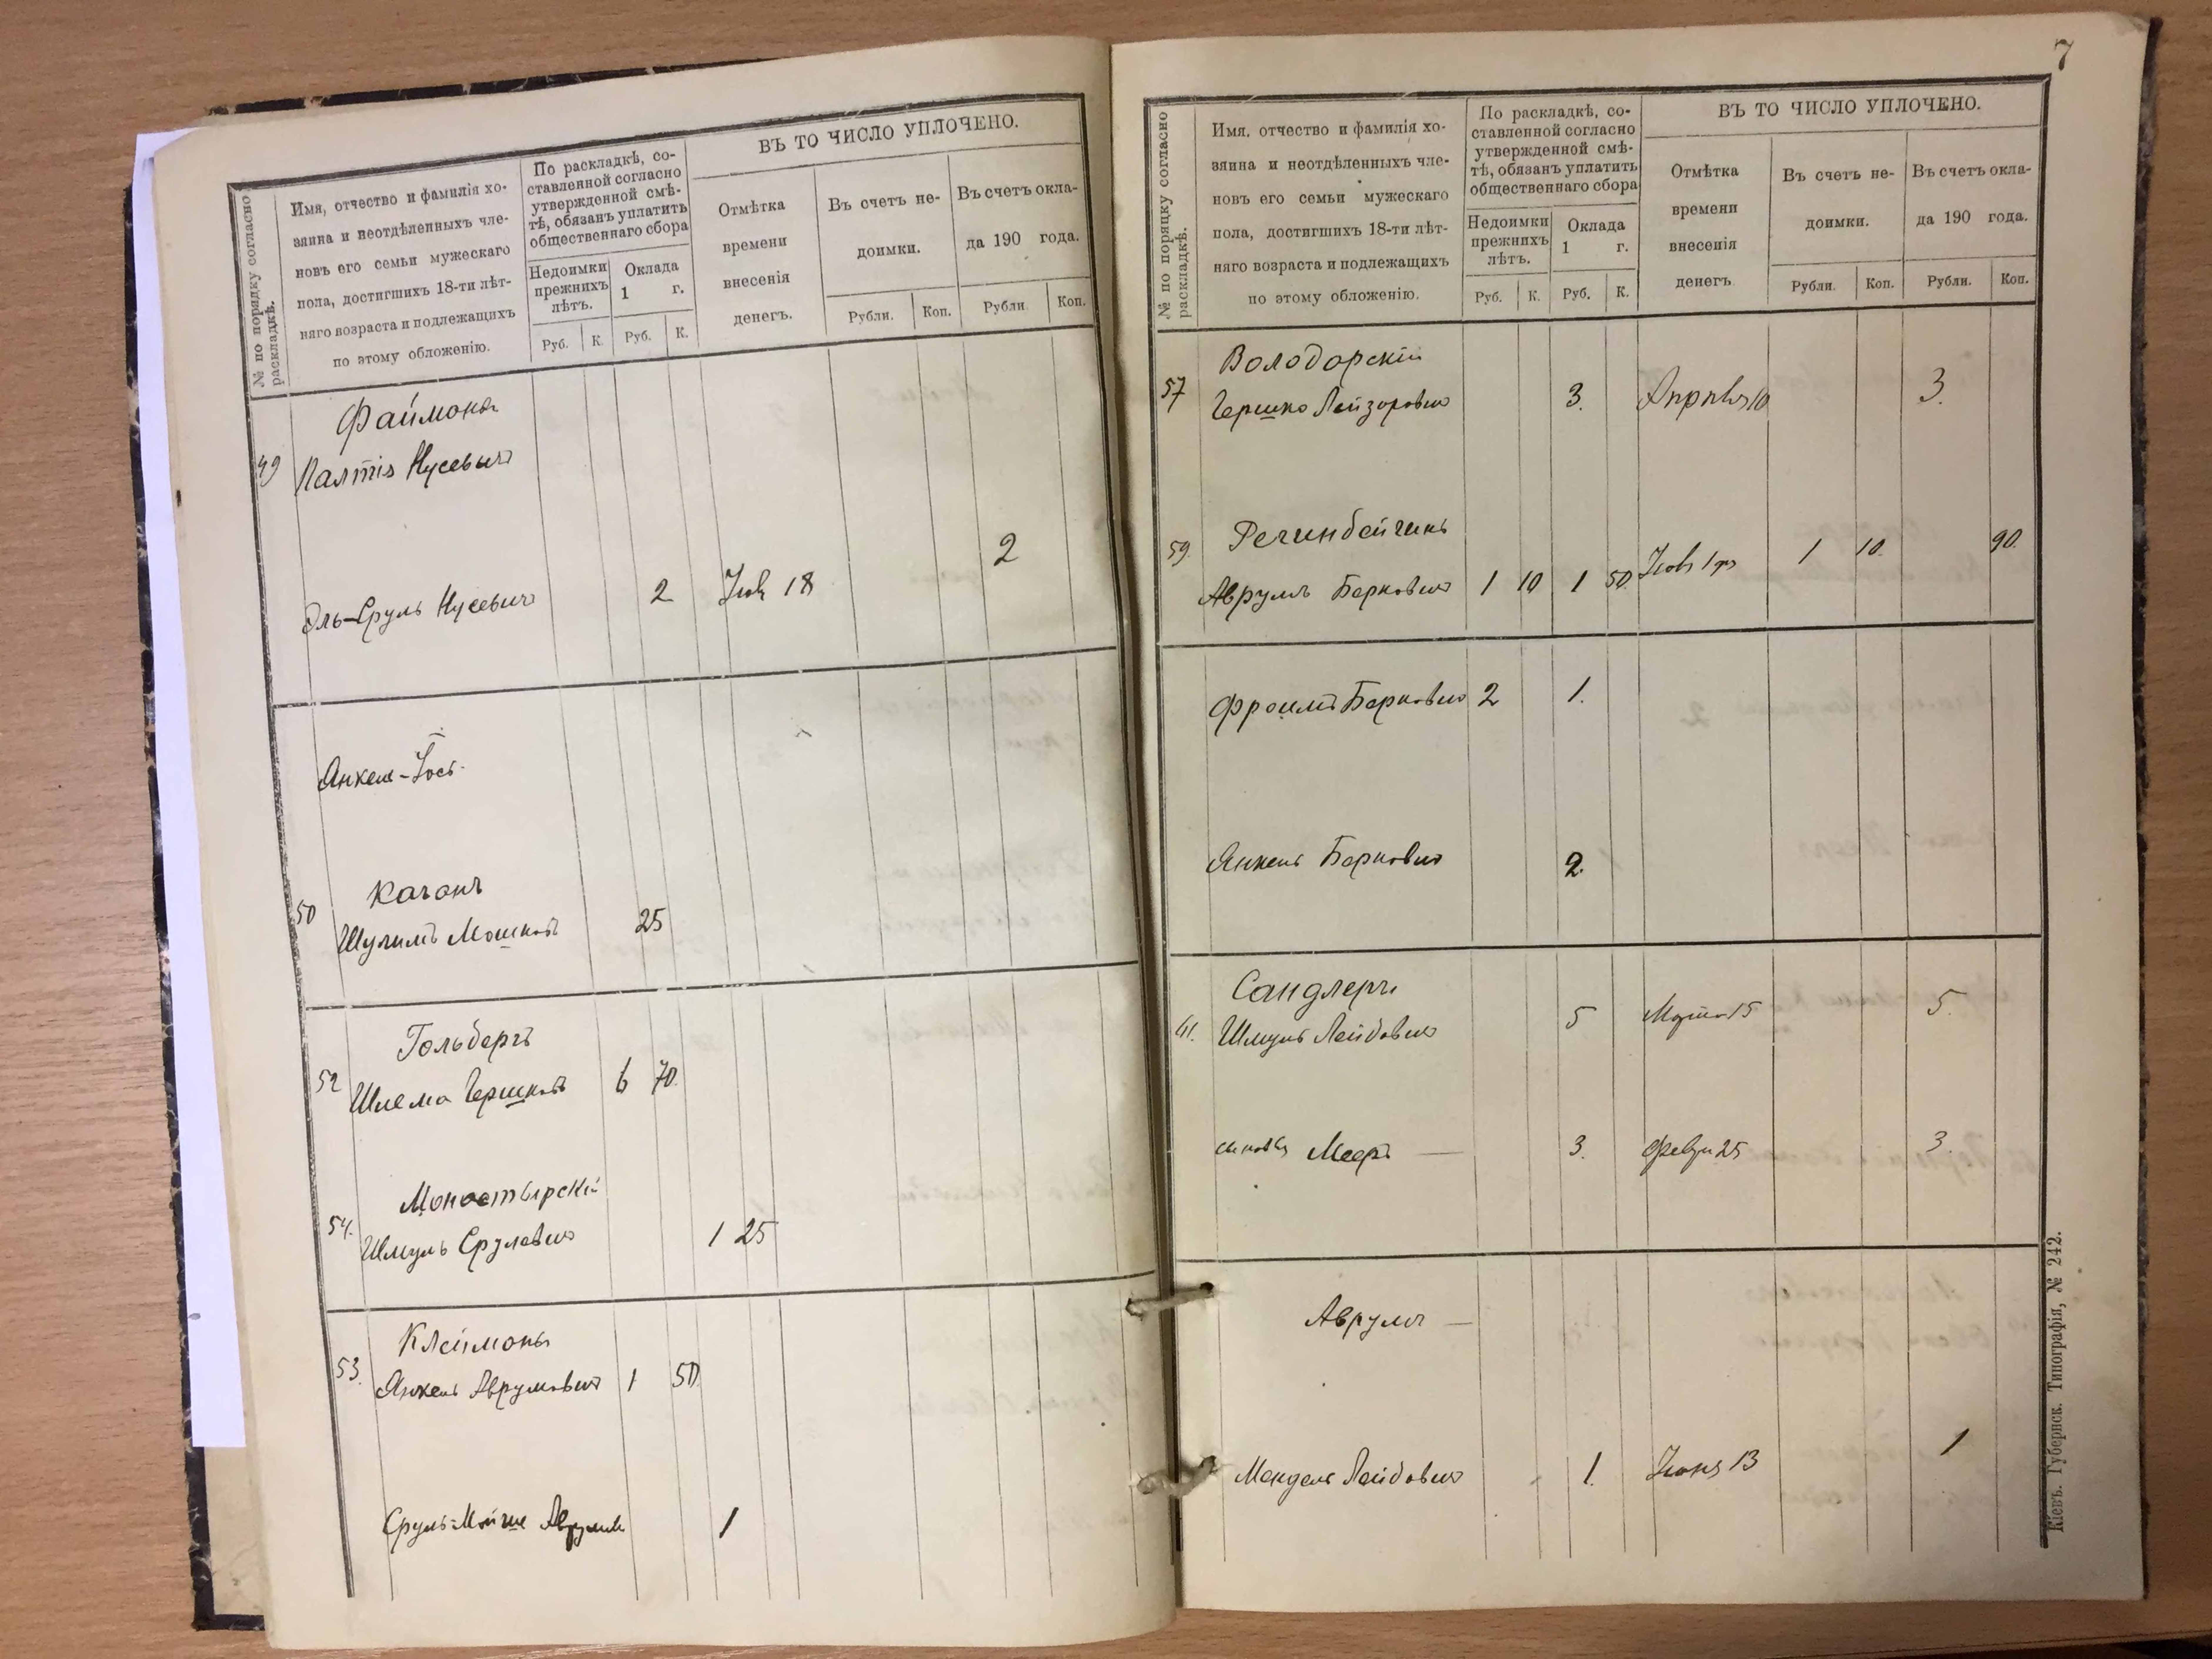 № по порядку согласно
раскладкѣ.
Имя, отчество и фамилія хо-
зяина и неотдѣленныхъ чле-
новъ его семьи мужескаго
пола, достигшихъ 18-ти лѣт-
няго возраста и подлежащихъ
по этому обложенію.
По раскладкѣ, со-
ставленной согласно
утвержденной смѣ-
тѣ, обязанъ уплатить
общественнаго сбора
Недоимки
прежнихъ
лѣтъ.
Оклада
1 г.
Руб. К. Руб. К.
ВЪ ТО ЧИСЛО УПЛОЧЕНО.
Отмѣтка
времени
внесенія
денегъ.
Въ счетъ не-
доимки.
Въ счетъ окла-
да 190 года.
Рубли. Коп. Рубли Коп.
Файмонъ
49 Палтія Нусевичъ
Эль-Сруль Нусевичъ 2 18 2
Анкель-Іось
Каганъ
50 Шулимъ Мошковъ 25
Гольбергъ
52 Шлема Гершковъ 6 70
Монастырскій
54. Шмуль Срулевичъ 1 25
Клеймонъ
53. Янкель Аврумовичъ 1 50
Сруль-Мойше Аврумов 1
7
№ по порядку согласно
раскладкѣ.
Имя, отчество и фамилія хо-
зяина и неотдѣленныхъ чле-
новъ его семьи мужескаго
пола, достигшихъ 18-ти лѣт-
няго возраста и подлежащихъ
по этому обложенію.
По раскладкѣ, со-
ставленной согласно
утвержденной смѣ-
тѣ, обязанъ уплатить
общественнаго сбора
Недоимки
прежнихъ
лѣтъ.
Оклада
1 г.
Руб. К. Руб. К.
ВЪ ТО ЧИСЛО УПЛОЧЕНО.
Отмѣтка
времени
внесенія
денегъ
Въ счетъ не-
доимки.
Въ счетъ окла-
да 190 года.
Рубли. Коп. Рубли. Коп.
Володарскій
57 Гершко Лейзоровичъ 3. Апрѣля 10 3.
59. Аврумъ Берковичъ 1 10 1 50 1 10. 90.
Фроимъ Берковичъ 2 1.
Янкель Берковичъ 2.
Сандлеръ
61. Шмуль Лейбовичъ 5 Марта 15 5.
сыновья Мееръ — 3. Февр 25 3.
Аврумъ —
Мендель Лейбовичъ 1. Іюня 13 1
Кіевъ. Губернск. Типографія, № 242.